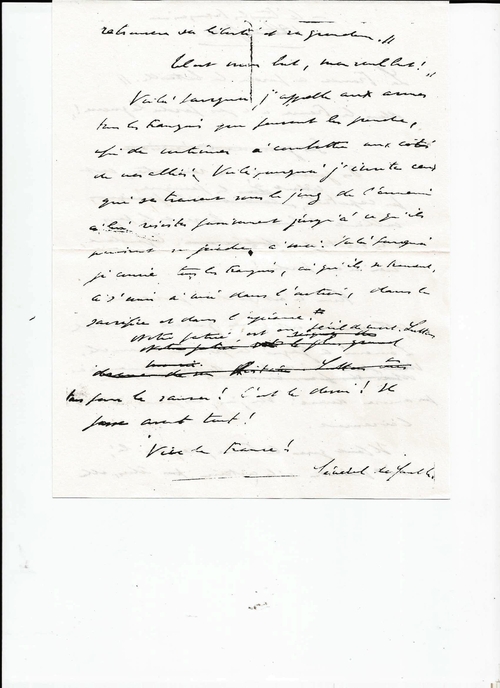 retrouve sa liberté et sa grandeur.
Tel est mon but, mon seul but!
Voilà pourquoi j'appelle aux armes
tous les Français qui peuvent les prendre,
afin de continuer à combattre aux côtés
de nos alliés. Voilà pourquoi j'invite ceux
qui se trouvent sous le joug de l'ennemi
à lui résister jusqu'à ce qu'ils
puissent se joindre à moi. Voilà pourquoi
je convie tous les Français, où qu'ils se trouvent,
à s'unir à moi dans l'action, dans le
sacrifice et dans l'espérance.
Notre patrie est en péril de mort. Luttons
tous pour la sauver!
Vive la France!
Général de Gaulle.